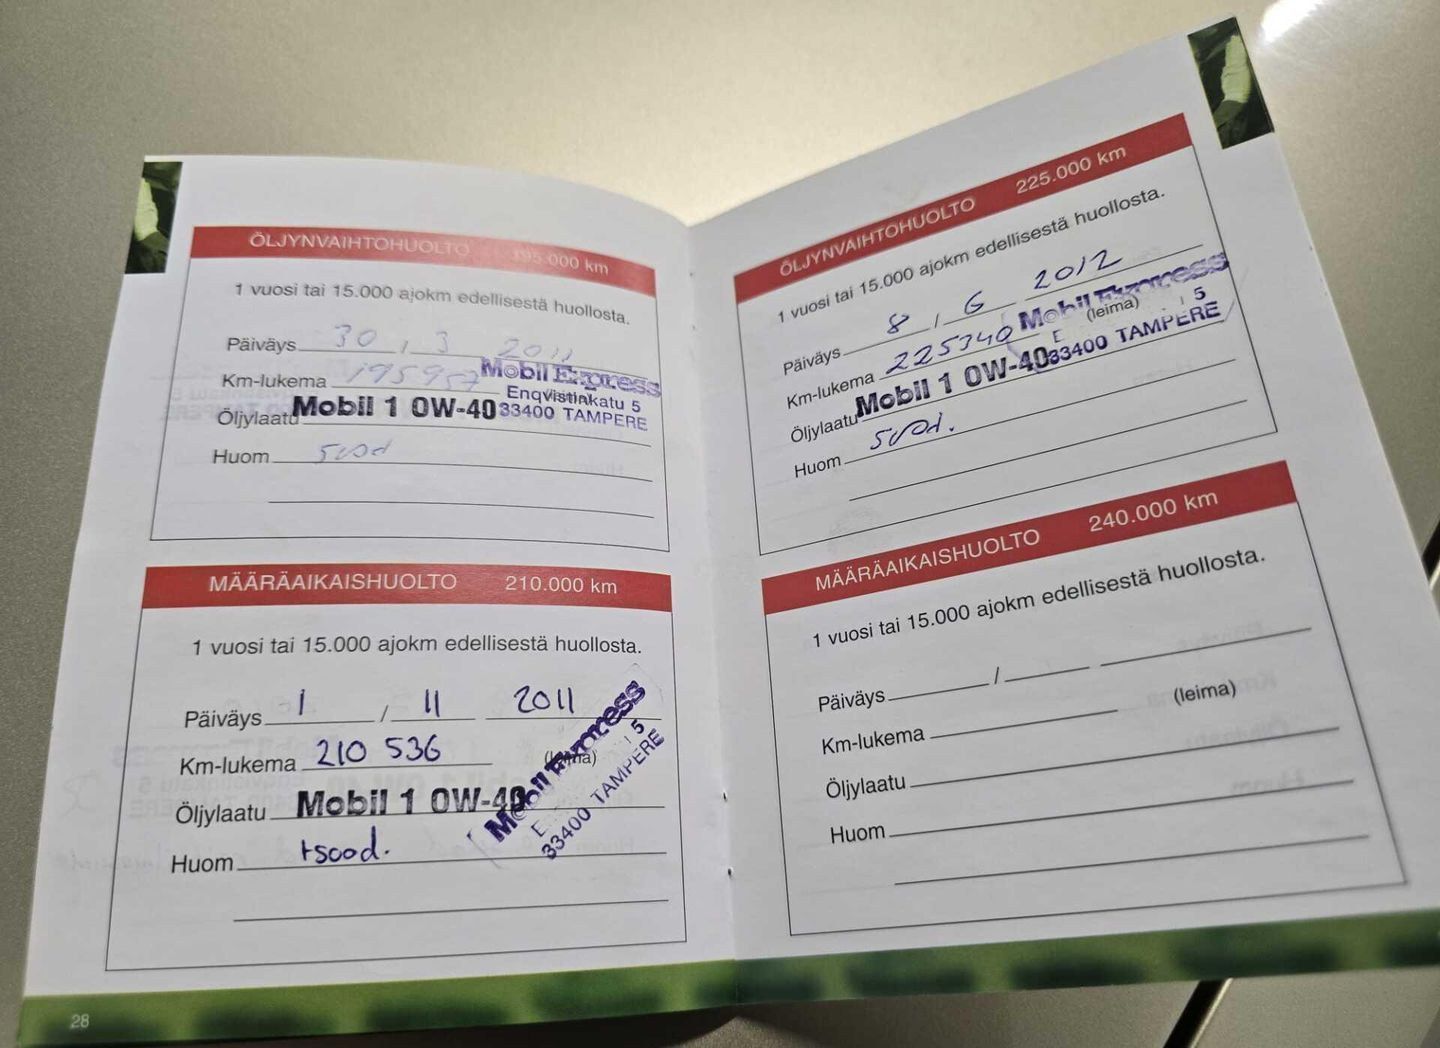 ÖLJYNVAIHTOHUOLTO 195.000 km
1 vuosi tai 15.000 ajokm edellisestä huollosta.
Päiväys 30 / 3 2011
Km-lukema 195957
Mobil Express
(leima)
Enqvistinkatu 5
Öljylaatu Mobil 1 0W-40 33400 TAMPERE
Huom
MÄÄRÄAIKAISHUOLTO 210.000 km
1 vuosi tai 15.000 ajokm edellisestä huollosta.
Päiväys 1 / 11 2011
Km-lukema 210 536 (leima)
Mobil Express
5
33400 TAMPERE
Öljylaatu Mobil 1 0W-40
Huom +sood.
28
ÖLJYNVAIHTOHUOLTO 225.000 km
1 vuosi tai 15.000 ajokm edellisestä huollosta.
Päiväys 8 / 6 2012
Km-lukema 225340 Mobil Express
(leima) 5
Öljylaatu Mobil 1 0W-40 33400 TAMPERE
Huom
MÄÄRÄAIKAISHUOLTO 240.000 km
1 vuosi tai 15.000 ajokm edellisestä huollosta.
Päiväys /
Km-lukema (leima)
Öljylaatu
Huom